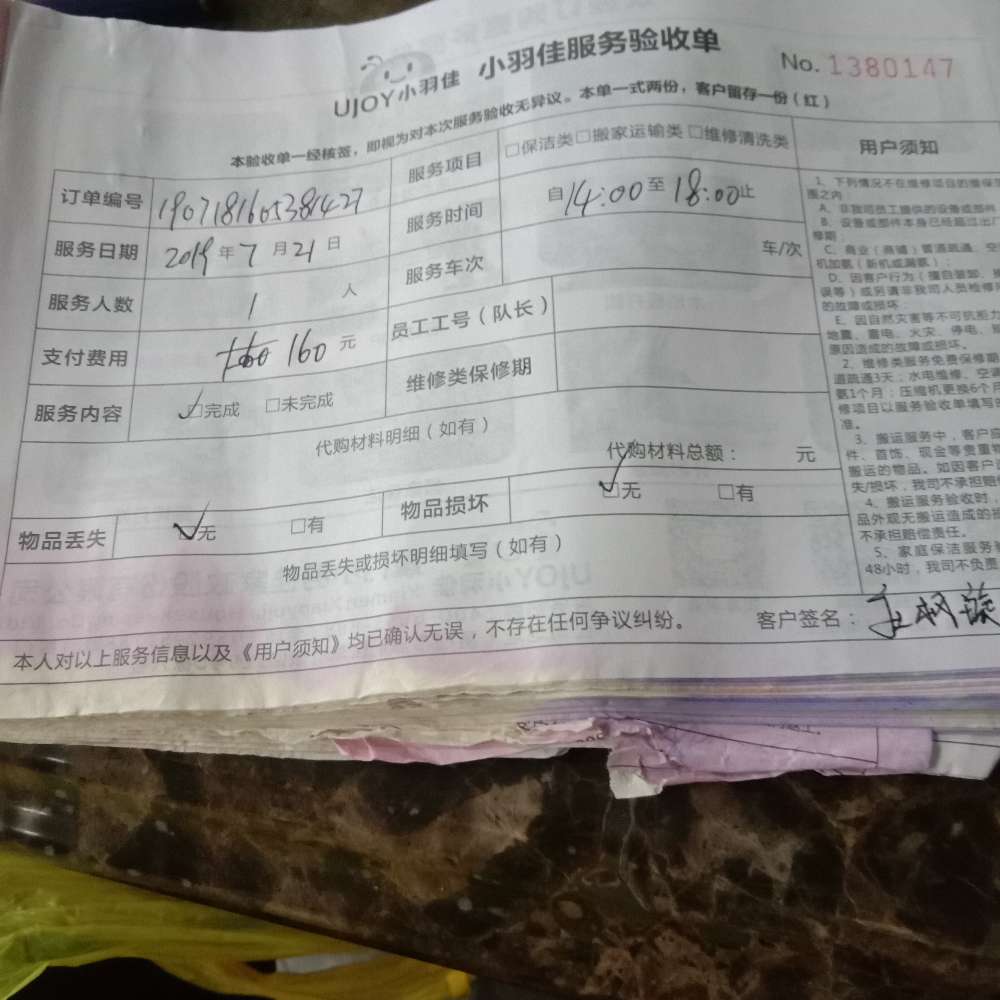 UJOY小羽佳 小羽佳服务验收单
No. 1380147
本验收单一经核签，即视为对本次服务验收无异议。本单一式两份，客户留存一份（红）
订单编号 190718160538427 服务项目 □保洁类□搬家运输类□维修清洗类
服务日期 2019年7月21日 服务时间 自14:00至18:00止
服务人数 1人 服务车次 车/次
支付费用 160 160元 员工工号（队长）
服务内容 ☑完成 □未完成 维修类保修期
代购材料明细（如有）
代购材料总额： 元
物品丢失 ☑无 □有 物品损坏 ☑无 □有
物品丢失或损坏明细填写（如有）
本人对以上服务信息以及《用户须知》均已确认无误，不存在任何争议纠纷。 客户签名：
用户须知
1、下列情况不在维修项目的维保
围之内
A、非我司员工提供的设备或部件
B、设备或部件本身已经超过出
修期；
C、商业（商铺）管道疏通、空
机加氨（新机或漏氨）；
D、因客户行为（擅自装卸、
误等）或另请非我司人员检修
的故障或损坏；
E、因自然灾害等不可抗力
地震、雷电、火灾、停电、
原因造成的故障或损坏。
2、维修类服务免费保修期
道疏通3天；水电维修、空调
氨1个月；压缩机更换6个
修项目以服务验收单填写的
准。
3、搬运服务中，客户应
件、首饰、现金等贵重物
搬运的物品。如因客户
失/损坏，我司不承担赔
4、搬运服务验收时，
品外观无搬运造成的损
不承担赔偿责任。
5、家庭保洁服务
48小时，我司不负责